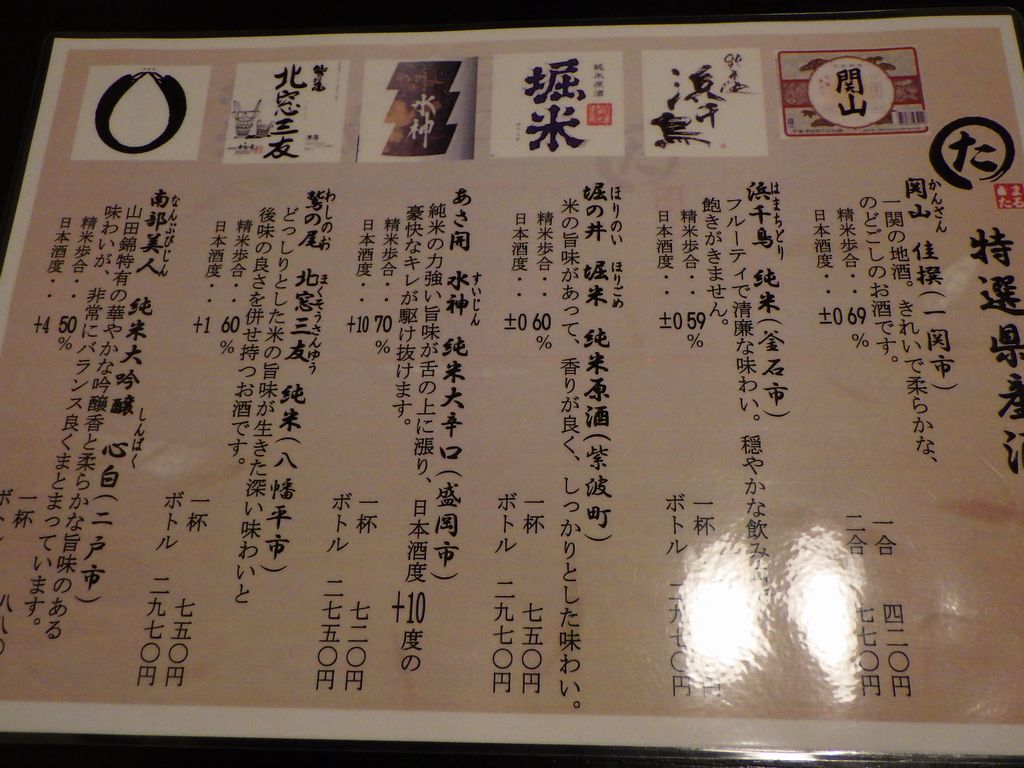 た
特選県産酒
関山 佳撰(一関市)
かんざん
一関の地酒。きれいで柔らかな、
のどごしのお酒です。
精米歩合・・69%
日本酒度・・±0
一合 四二〇円
二合 七七〇円
浜千鳥 純米(釜石市)
はまちどり
フルーティで清廉な味わい。穏やかな飲み
飽きがきません。
精米歩合・・59%
日本酒度・・±0
一杯
ボトル 二九七〇円
堀の井 堀米 純米原酒(紫波町)
ほりのい ほりごめ
米の旨味があって、香りが良く、しっかりとした味わい。
精米歩合・・60%
日本酒度・・±0
一杯 七五〇円
ボトル 二九七〇円
あさ開 水神 純米大辛口(盛岡市)
すいじん
純米の力強い旨味が舌の上に漲り、日本酒度+10度の
豪快なキレが駆け抜けます。
精米歩合・・70%
日本酒度・・+10
一杯 七二〇円
ボトル 二七五〇円
鷲の尾 北窓三友 純米(八幡平市)
わしのお ほくそうさんゆう
どっしりとした米の旨味が生きた深い味わいと
後味の良さを併せ持つお酒です。
精米歩合・・60%
日本酒度・・+1
一杯 七五〇円
ボトル 二九七〇円
南部美人 純米大吟醸 心白(二戸市)
なんぶびじん しんぱく
山田錦特有の華やかな吟醸香と柔らかな旨味のある
味わいが、非常にバランス良くまとまっています。
精米歩合・・50%
日本酒度・・+4
一杯
ボトル
関山
浜千鳥
純米原酒
堀米
水神
北窓三友